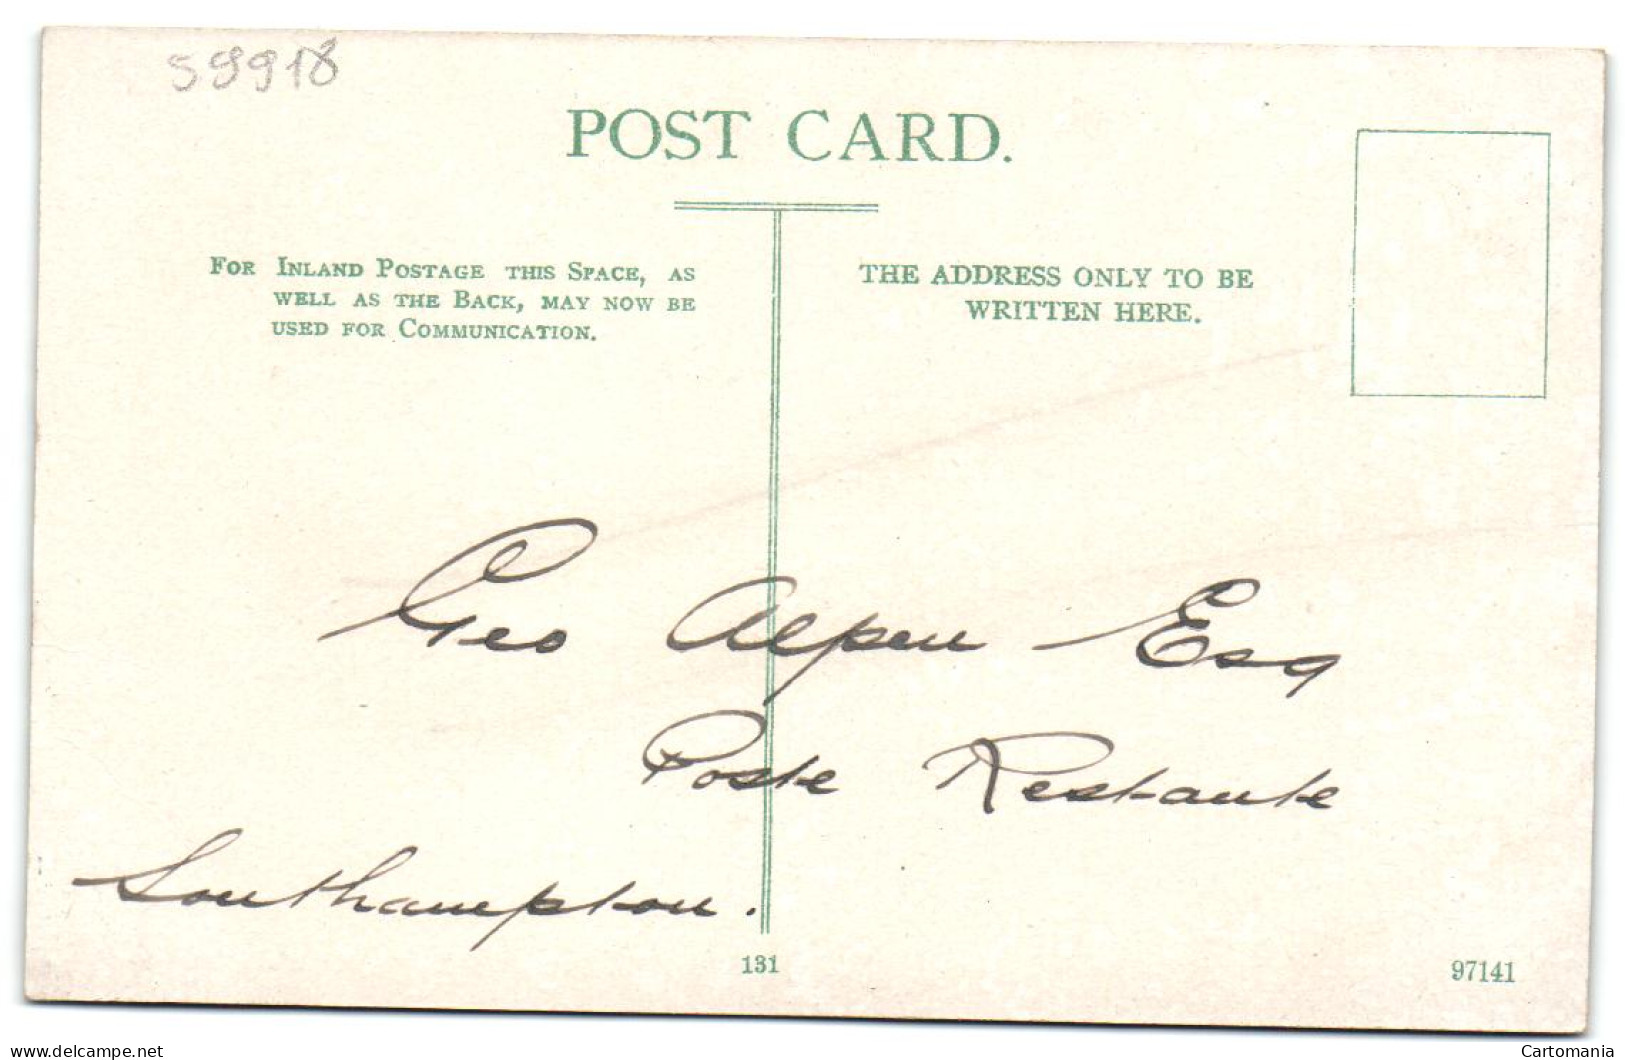 59918
POST CARD.
FOR INLAND POSTAGE THIS SPACE, AS
WELL AS THE BACK, MAY NOW BE
USED FOR COMMUNICATION.
THE ADDRESS ONLY TO BE
WRITTEN HERE.
Geo Alpen Esq
Poste Restante
Southampton.
131
97141
www.delcampe.net
Cartomania